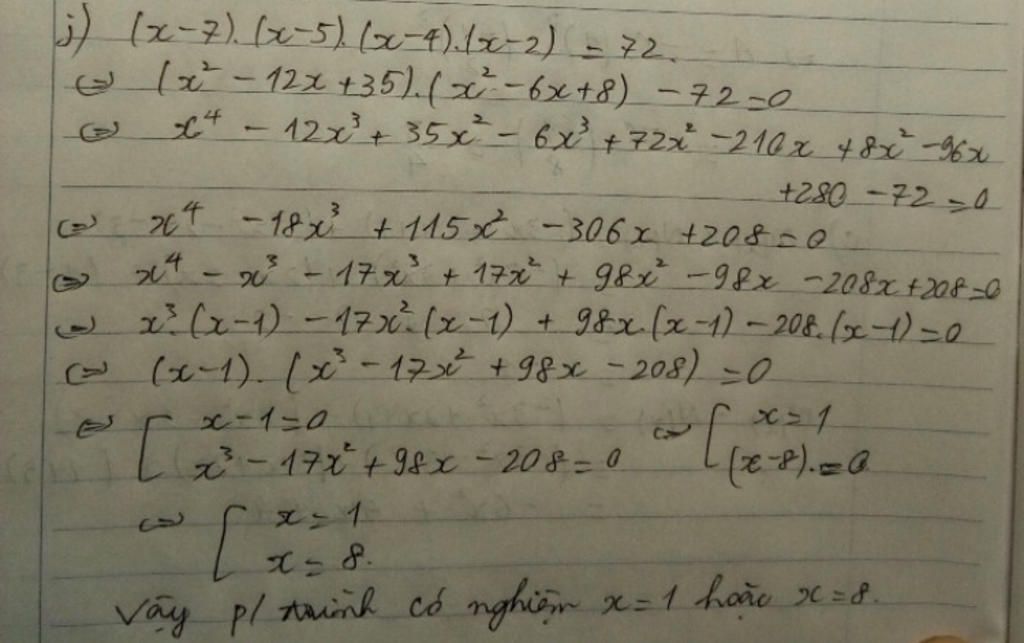 j) (x-7).(x-5).(x-4).(x-2) = 72.
⇔ (x² - 12x + 35).(x² - 6x + 8) - 72 = 0
⇔ x⁴ - 12x³ + 35x² - 6x³ + 72x² - 210x + 8x² - 96x
+280 - 72 = 0
⇔ x⁴ - 18x³ + 115x² - 306x + 208 = 0
⇔ x⁴ - x³ - 17x³ + 17x² + 98x² - 98x - 208x + 208 = 0
⇔ x³.(x-1) - 17x².(x-1) + 98x.(x-1) - 208.(x-1) = 0
⇔ (x-1).(x³ - 17x² + 98x - 208) = 0
⇔ [ x - 1 = 0 ⇔ [ x = 1
x³ - 17x² + 98x - 208 = 0 (x-8). = 0
⇔ [ x = 1
x = 8.
Vậy p/ trình có nghiệm x = 1 hoặc x = 8.